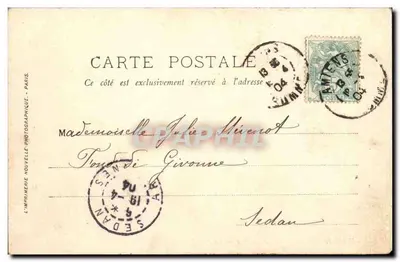 CARTE POSTALE
Ce côté est exclusivement réservé à l'adresse
AMIENS
13
04
SOMME
Mademoiselle Julie
Fond de Givonne
Sedan
SEDAN
ARDENNES
04
L'IMPRIMERIE NOUVELLE PHOTOGRAPHIQUE - PARIS.